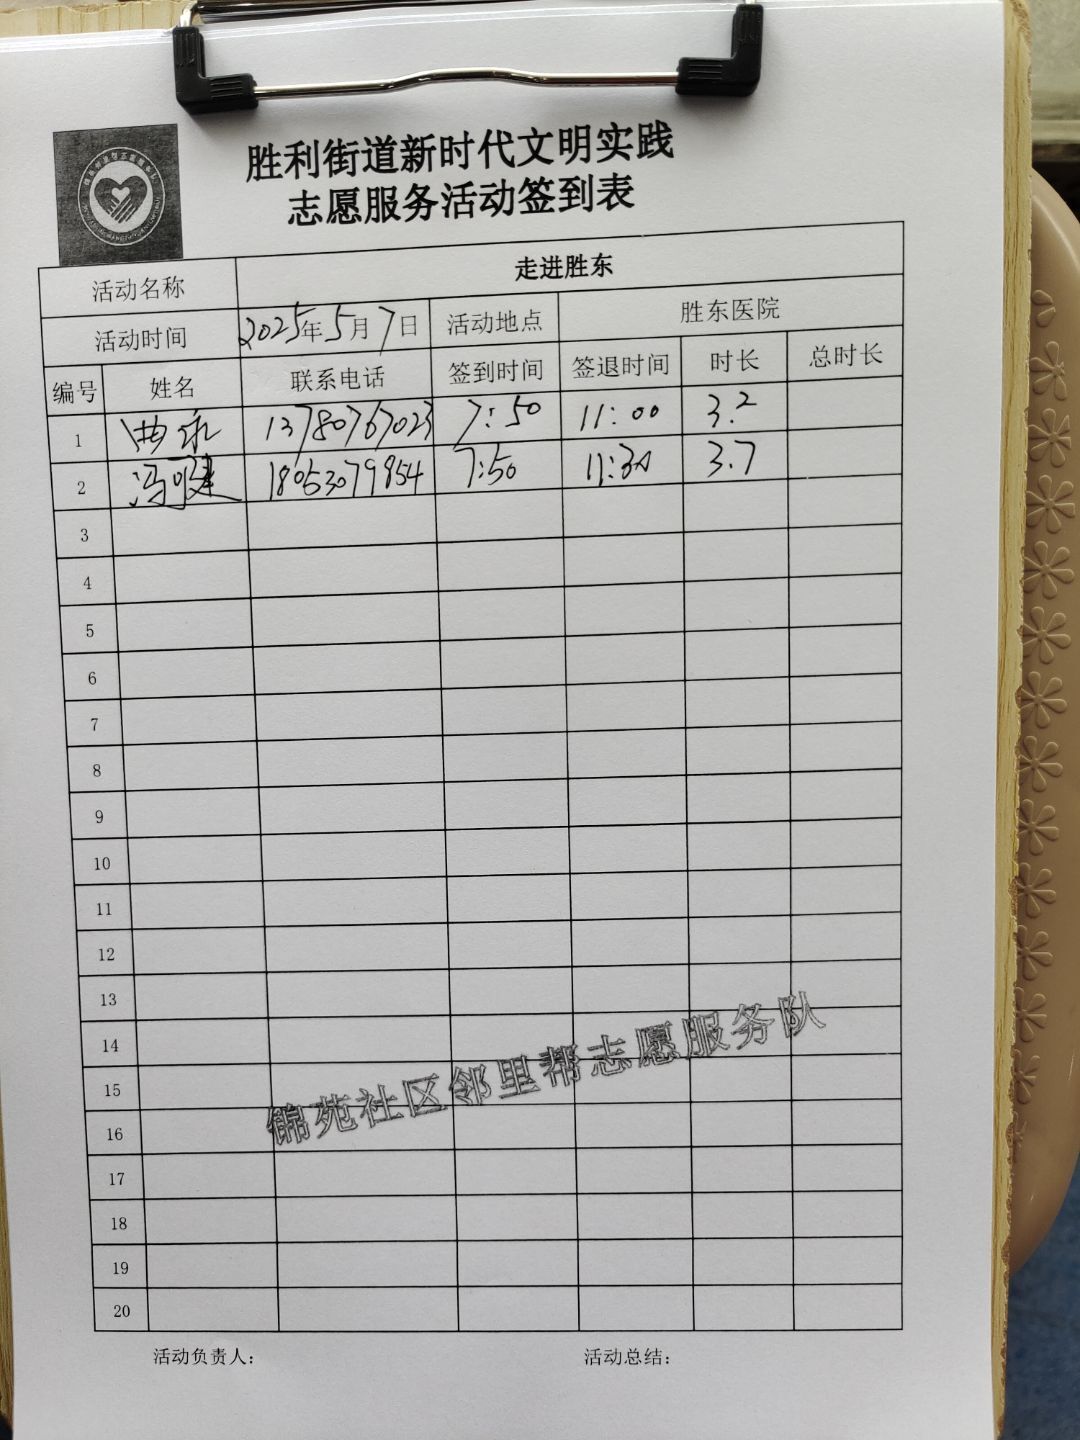 胜利街道新时代文明实践
志愿服务活动签到表
活动名称 走进胜东
活动时间 2025年5月7日 活动地点 胜东医院
编号 姓名 联系电话 签到时间 签退时间 时长 总时长
1 13780767023 7:50 11:00 3.2
2 冯可建 18053079854 7:50 11:30 3.7
3
4
5
6
7
8
9
10
11
12
13
14
15
16
17
18
19
20
锦苑社区邻里帮志愿服务队
活动负责人： 活动总结：